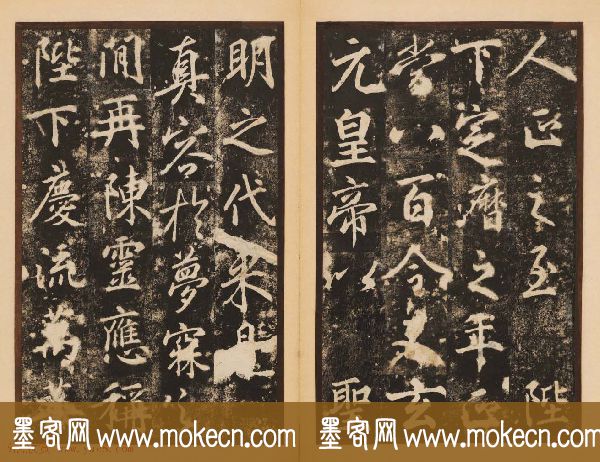 人臣之至 陛
下定曆之年
當八百今 玄
元皇帝以 聖
明之代 來是
真容於夢寐
間再陳靈應稱
陛下慶流萬
墨客网 www.mokecn.com
墨客网 www.mokecn.com